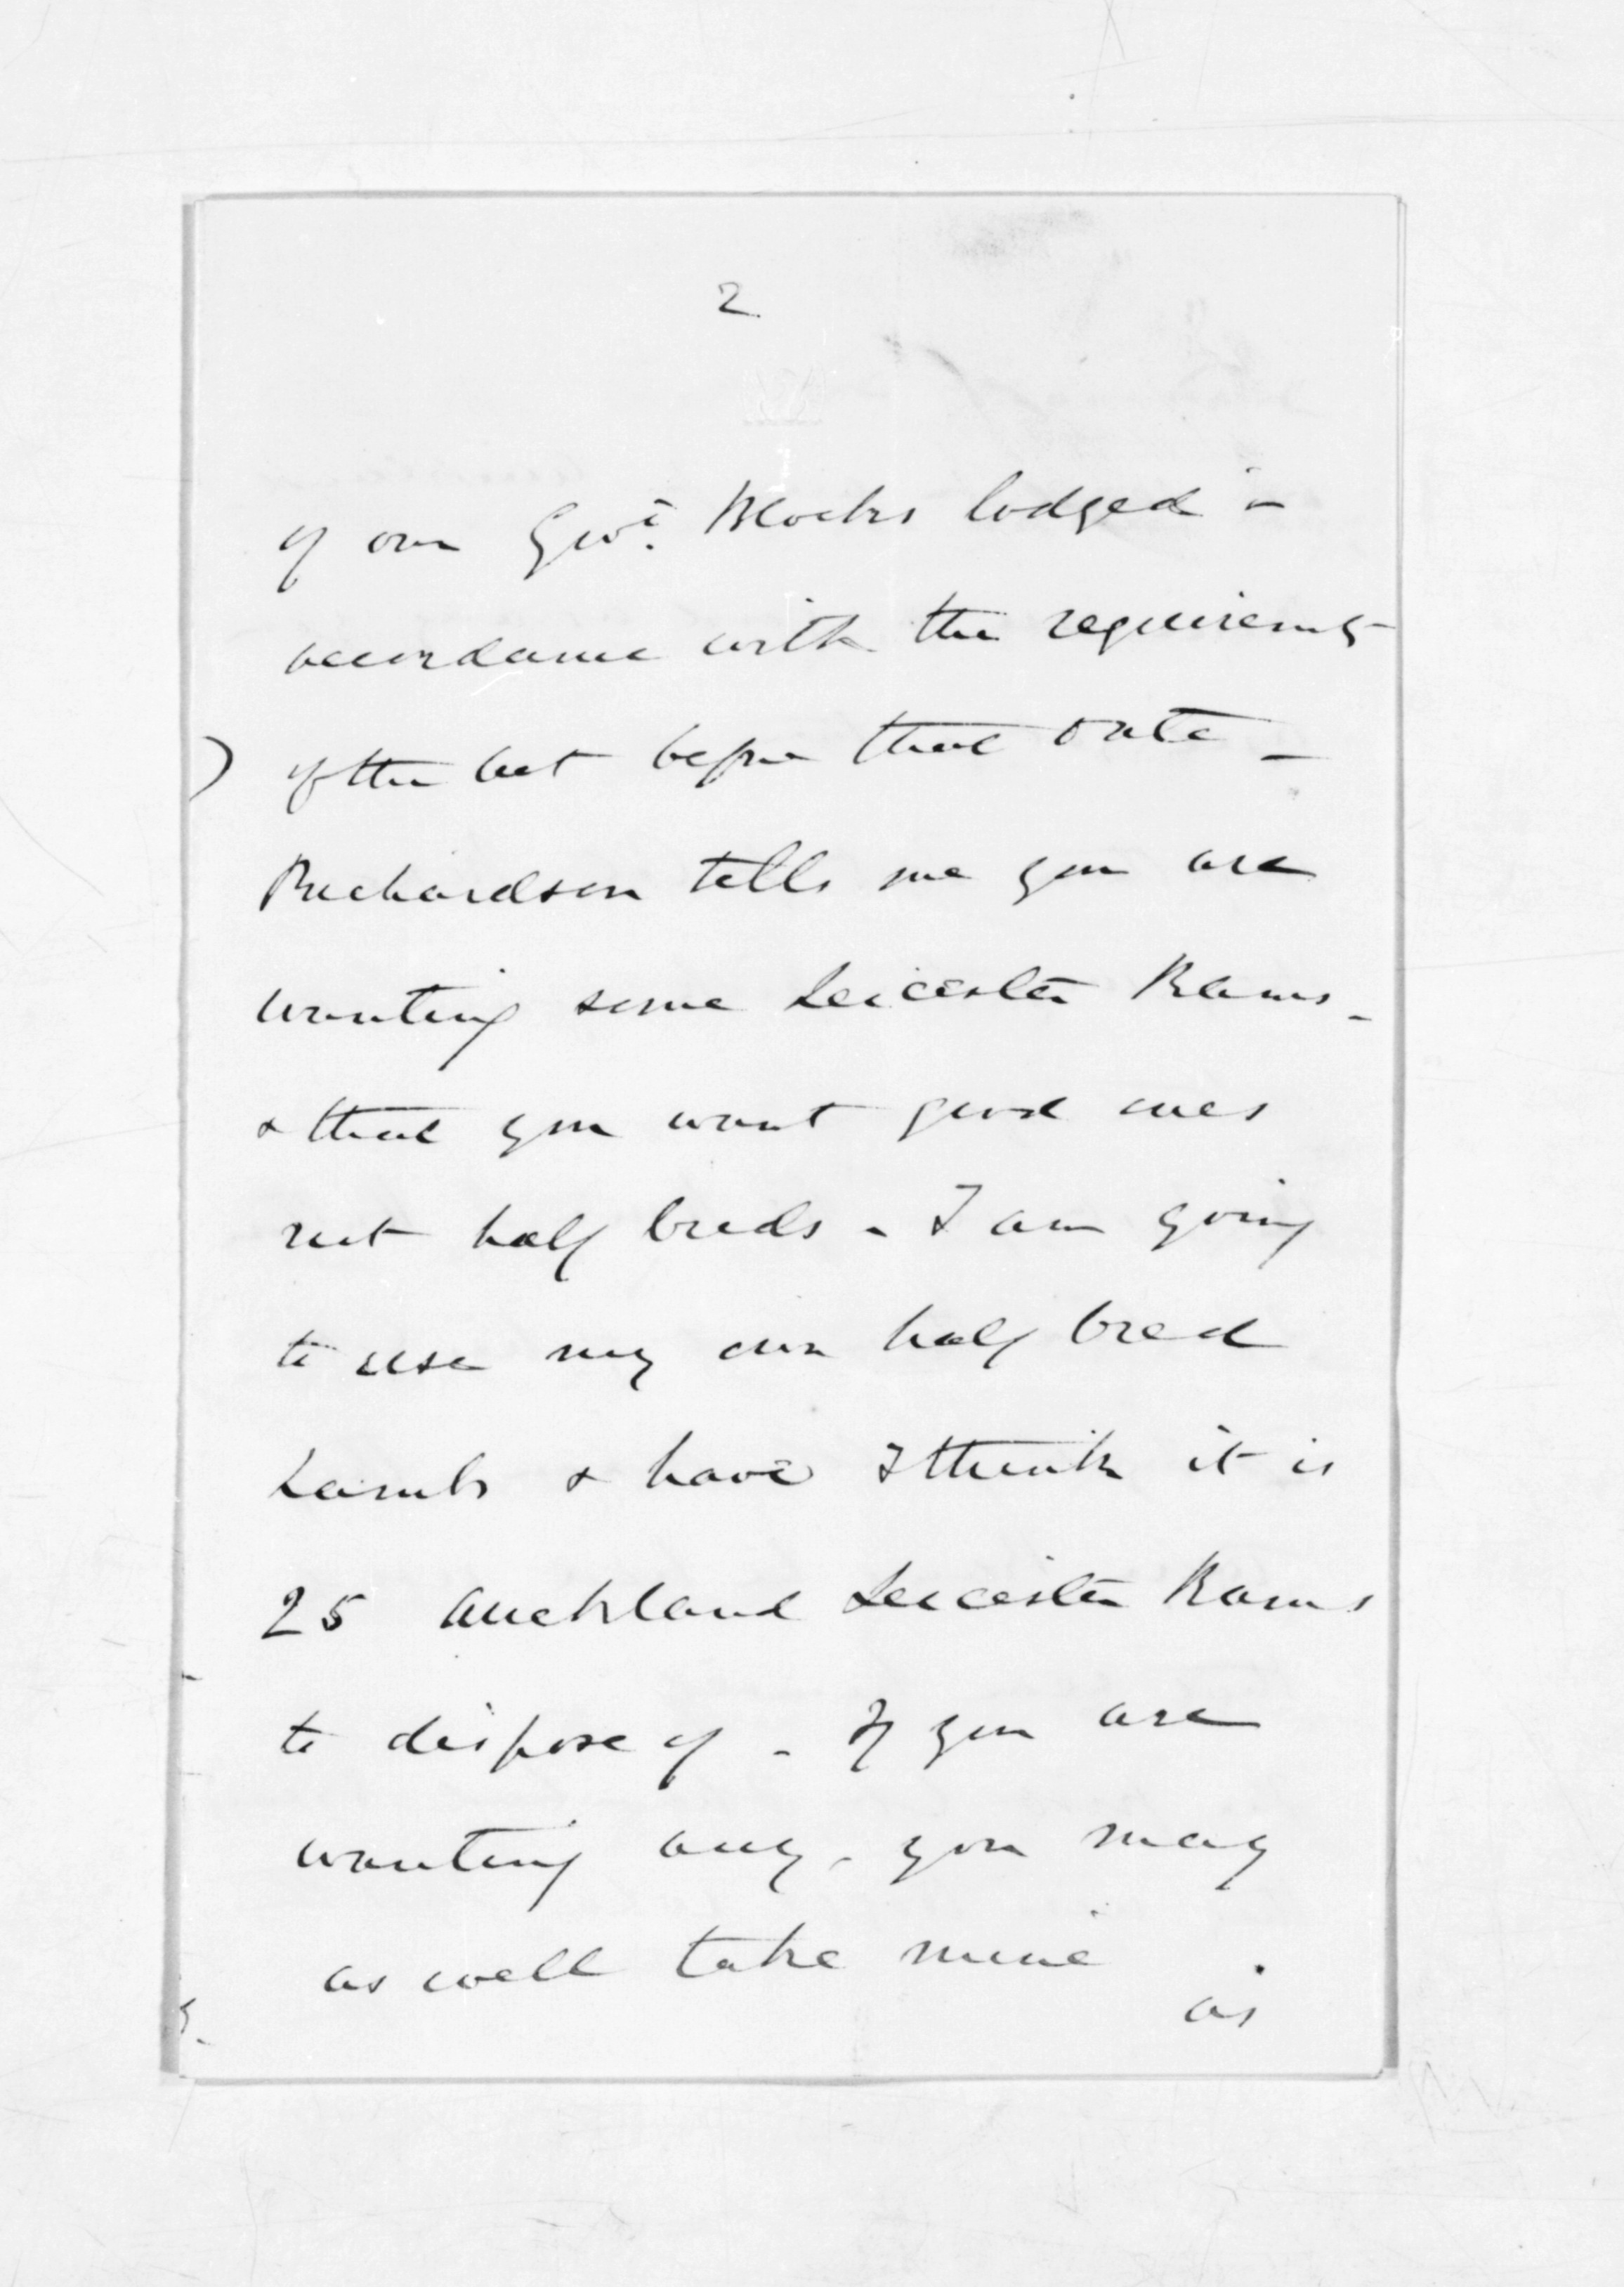 2
of our Govt. Blocks lodged in
accordance with the requirements
of the Act before that date -
Richardson tells me you are
wanting some Leicester Rams -
& that you want good ones
not half breds - I am going
to use my own half bred
Lambs & have I think it is
25 Auckland Leicester Rams
to dispose of - If you are
wanting any - you may
as well take mine
as